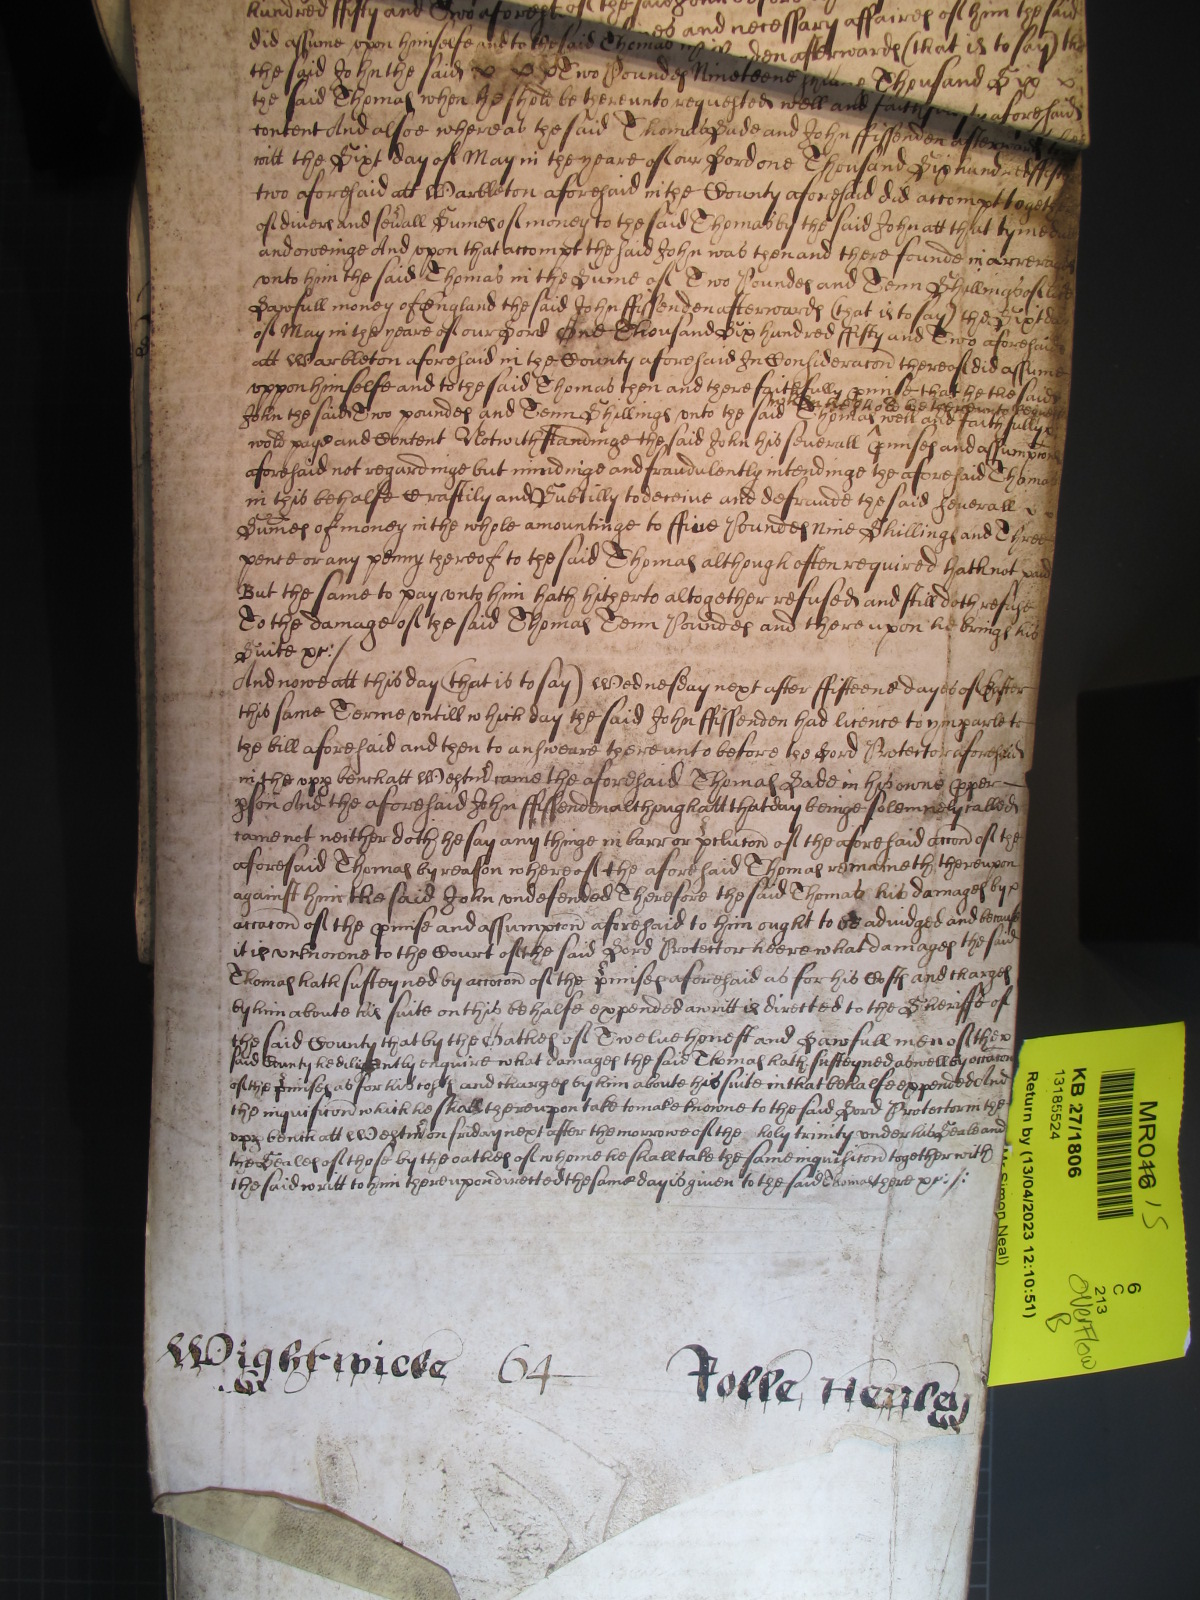 hundred ffifty and Two aforesd of the said John before
es and necessary affaires of him the said
did assume vpon himselfe and to the said Thomas den afterwards (that is to say) the
the said John the said x x x Two Poundes Nineteene Thousand Six x
the said Thomas when he shold be thereunto requested well and faith aforesaid
content And alsoe whereas the said Thomas Bade and John ffissenden afterwards
witt the Sixt day of May in the yeare of our Lord one Thousand Six hundred ffifty
two aforesaid att Warbleton aforesaid in the County aforesaid did accompt togeth
of divers and seuall Sumes of money to the said Thomas by the said John att that tyme
and oweinge And vpon that accompt the said John was then and there founde in arrerag
vnto him the said Thomas in the Sume of Two Poundes and Tenn Shillings of like
Lawfull money of England the said John ffissenden afterwards (that is to say) the Sixt da
of May in the yeare of our Lord One Thousand Six hundred ffifty and Two aforesaid
att Warbleton aforesaid in the County aforesaid In Consideracon thereof did assume
vppon himselfe and to the said Thomas then and there faithfully pmise that he the said
when he shold be thereunto reque
John the said Two poundes and Tenn Shillings vnto the said Thomas well and faithfully
wold paye and Content Notwithstandinge the said John his seuerall pmises and assumpcons
aforesaid not regardinge but mindinge and fraudulently intendinge the aforesaid Thomas
in this behalfe Craftily and Subtilly to deceive and defraude the said seuerall x x
Sumes of money in the whole amountinge to ffive Poundes Nine Shillings and Three
pence or any penny thereof to the said Thomas although often required hath not paid
But the same to pay vnto him hath hitherto altogether refused and still doth refuse
To the damage of the said Thomas Tenn Poundes and thereupon he brings his
Suite &c:/
And nowe att this day (that is to say) Wednesday next after ffifteene dayes of Easter
this same Terme vntill which day the said John ffissenden had licence to imparle to
the bill aforesaid and then to answeare thereunto before the Lord Protector aforesaid
in the vpp bench att Westmr came the aforesaid Thomas Bade in his owne pper
pson And the aforesaid John ffissenden although att that day beinge solemnely called
came not neither doth he say any thinge in barr or pclucon of the aforesaid accon of the
aforesaid Thomas by reason whereof the aforesaid Thomas remaineth thereupon
against him the said John vndefended Therefore the said Thomas his damages by x
occacon of the pmise and assumpcon aforesaid to him ought to be adiudged and because
it is vnknowne to the Court of the said Lord Protector heere what damages the said
Thomas hath susteyned by occacon of the pmises aforesaid as for his Costs and charges
by him aboute his suite on this behalfe expended a writt is directed to the Sheriffe of
the said County that by the Oathes of Twelve honest and Lawfull men of the x
said County he diligently enquire what damages the said Thomas hath susteyned aswell by occacon
of the pmises as for his costs and charges by him aboute his suite in that behalfe expended And
the inquisicon which he shall thereupon take to make knowne to the said Lord Protector in the
vpp bench att Westmr on friday next after the morrowe of the holy trinity vnder his Seale and
the Seales of those by the oathes of whome he shall take the same inquisicon together with
the said writt to him thereupon directed the same day is given to the said Thomas there &c:/:
Wightwicke 64 Rolle Henley
MR016 15
KB 27/1806
13185524
Return by (13/04/2023 12:10:51)
Simon Neal)
6
C
213
Overflow
B